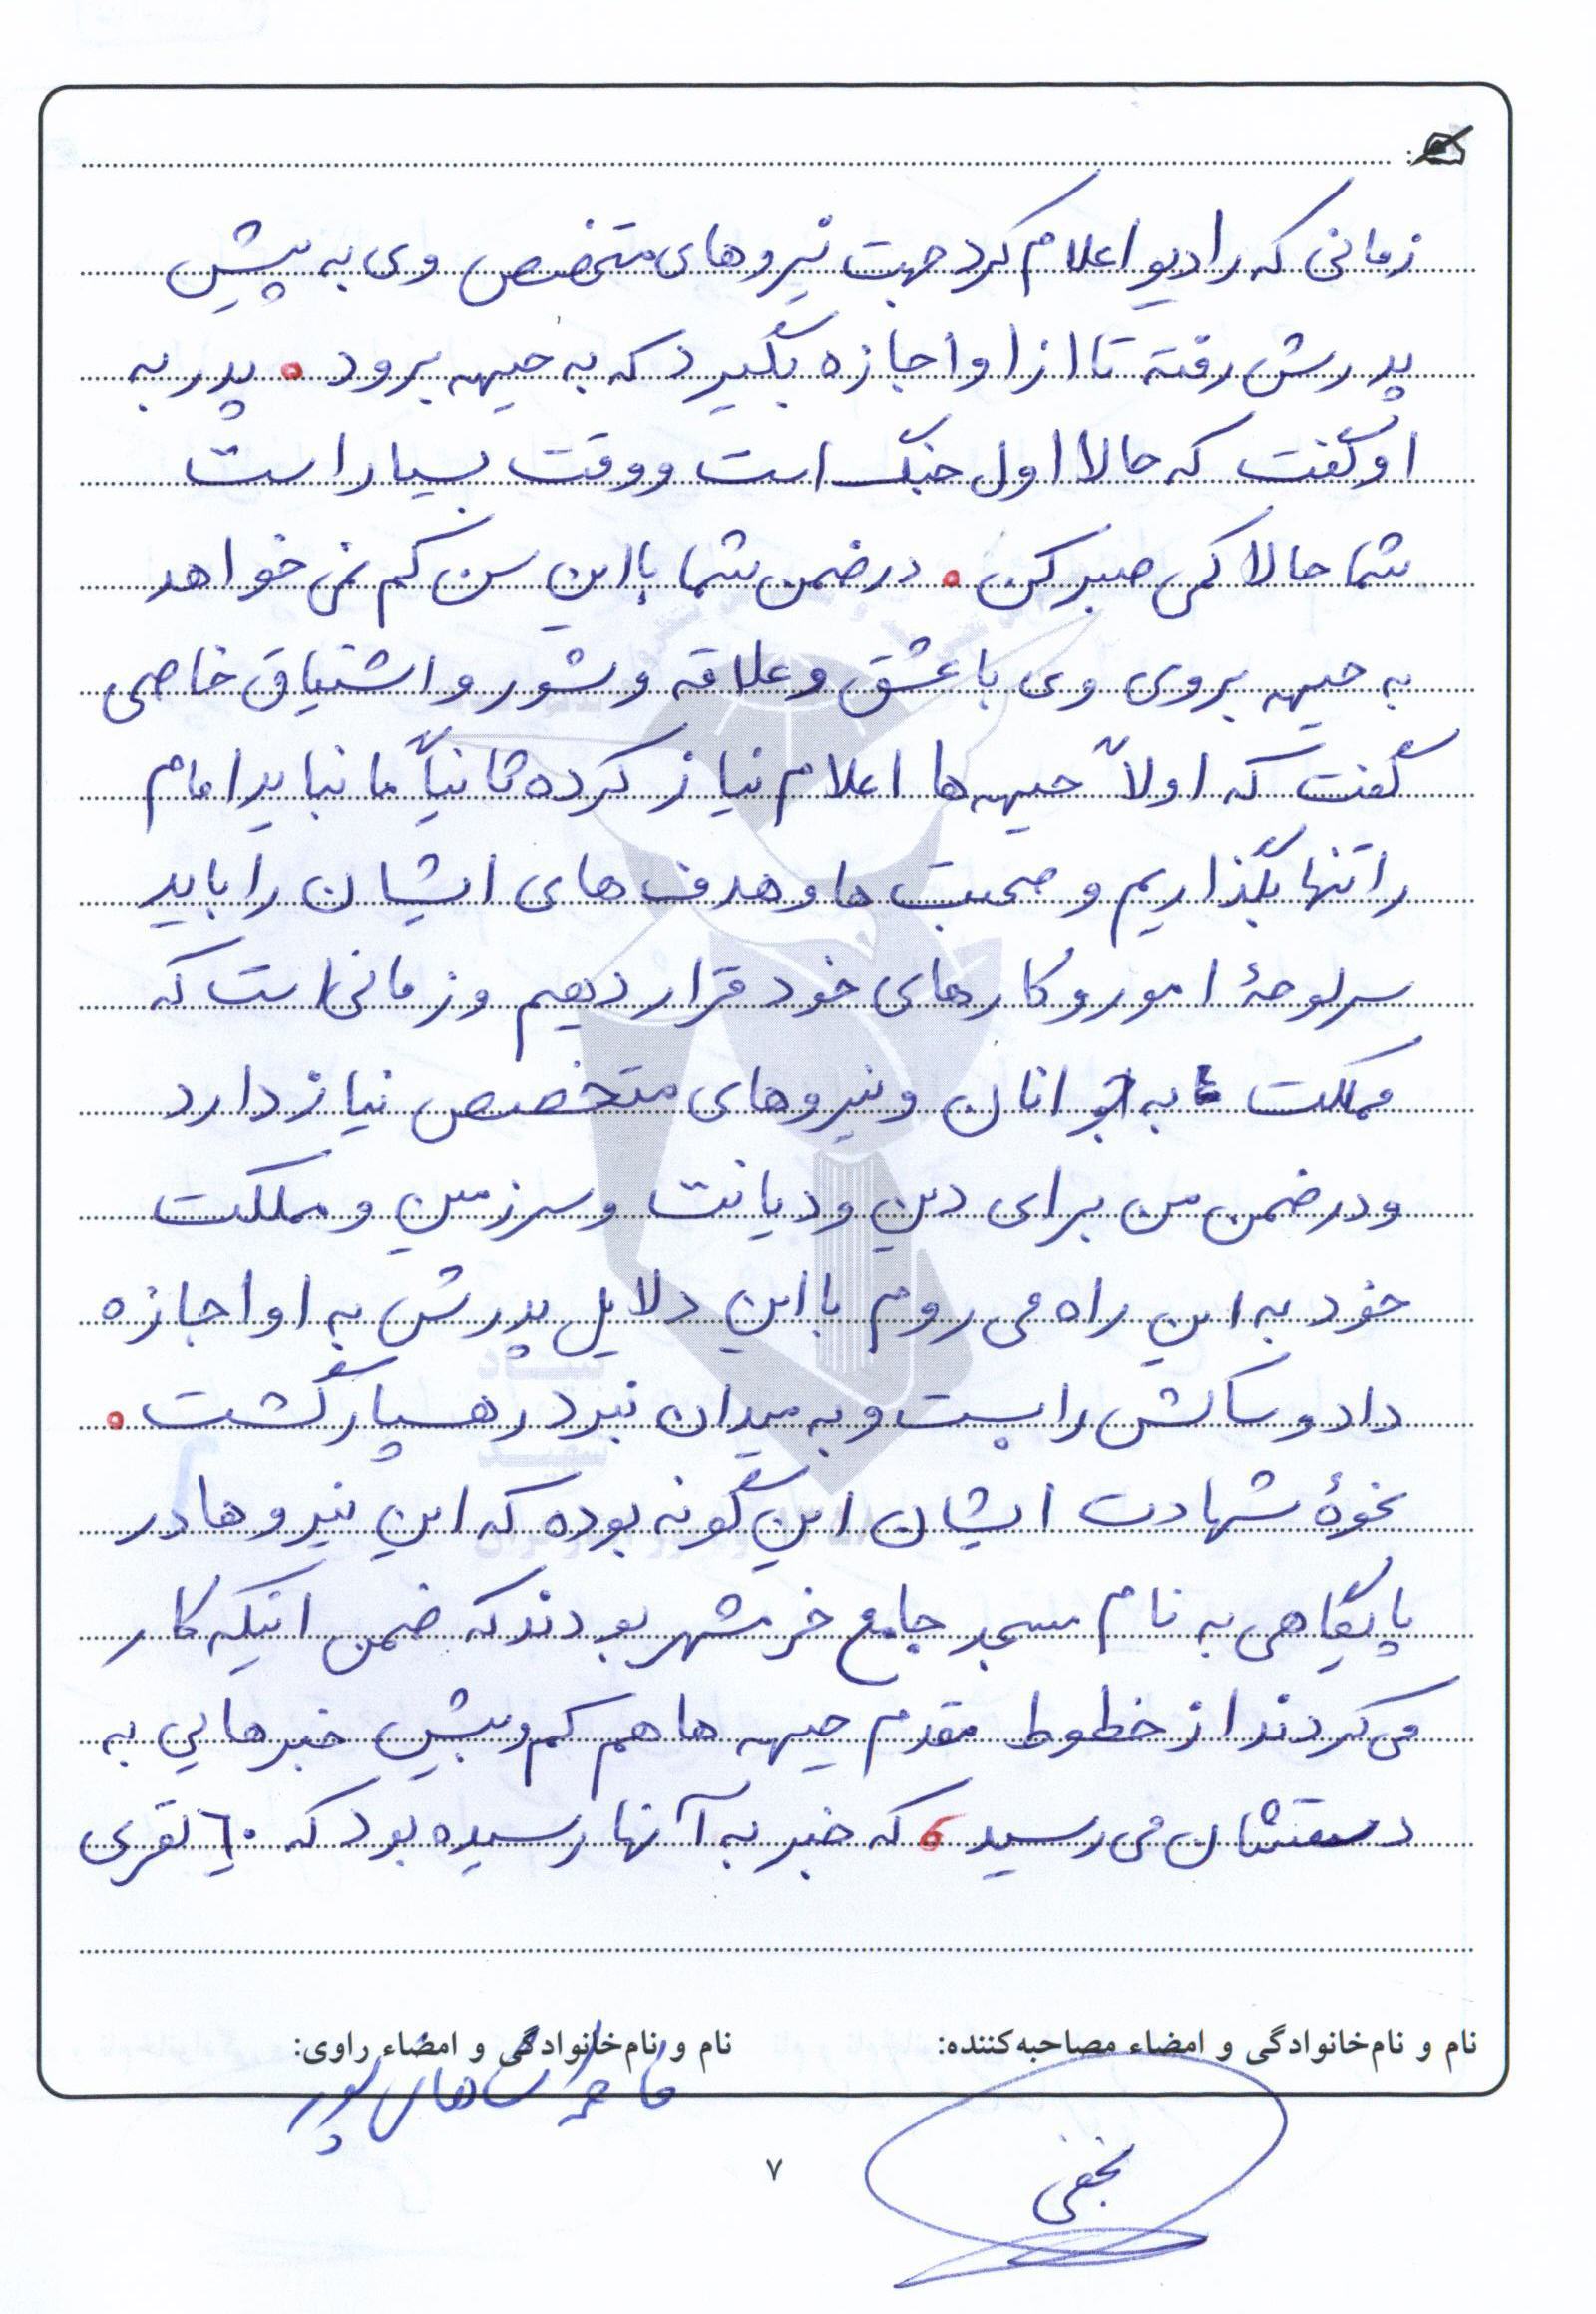 زمانی که رادیو اعلام کرد جهت نیروهای متخصص وی به پیش
پدرش رفته تا از او اجازه بگیرد که به جبهه برود. پدر به
او گفت که حالا اول جنگ است و وقت بسیار است
شما حالا کمی صبر کن. در ضمن شما با این سن کم نمی خواهد
به جبهه بروی وی با عشق و علاقه و شور و اشتیاق خاصی
گفت که اولاً جبهه ها اعلام نیاز کرده ثانیاً ما نباید امام
را تنها بگذاریم و صحبت ها و هدف های ایشان را باید
سرلوحهٔ امور و کارهای خود قرار دهیم و زمانی است که
مملکت به جوانان و نیروهای متخصص نیاز دارد
و در ضمن من برای دین و دیانت و سرزمین و مملکت
خود به این راه می روم با این دلایل پدرش به او اجازه
داد و ساکش را بست و به میدان نبرد رهسپار گشت.
نحوهٔ شهادت ایشان این گونه بوده که این نیروها در
پایگاهی به نام مسجد جامع خرمشهر بودند که ضمن اینکه کار
می کردند از خطوط مقدم جبهه ها هم کم و بیش خبرهایی به
دستشان می رسید، که خبر به آنها رسیده بود که ٦٠ نفری
نام و نام‌خانوادگی و امضاء مصاحبه‌کننده:
نام و نام‌خانوادگی و امضاء راوی:
نجفی
۷